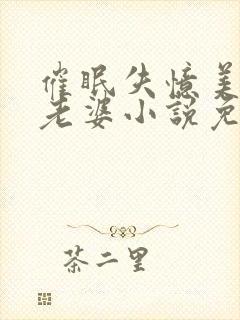 催眠失憶美
老婆小說免
茶二里